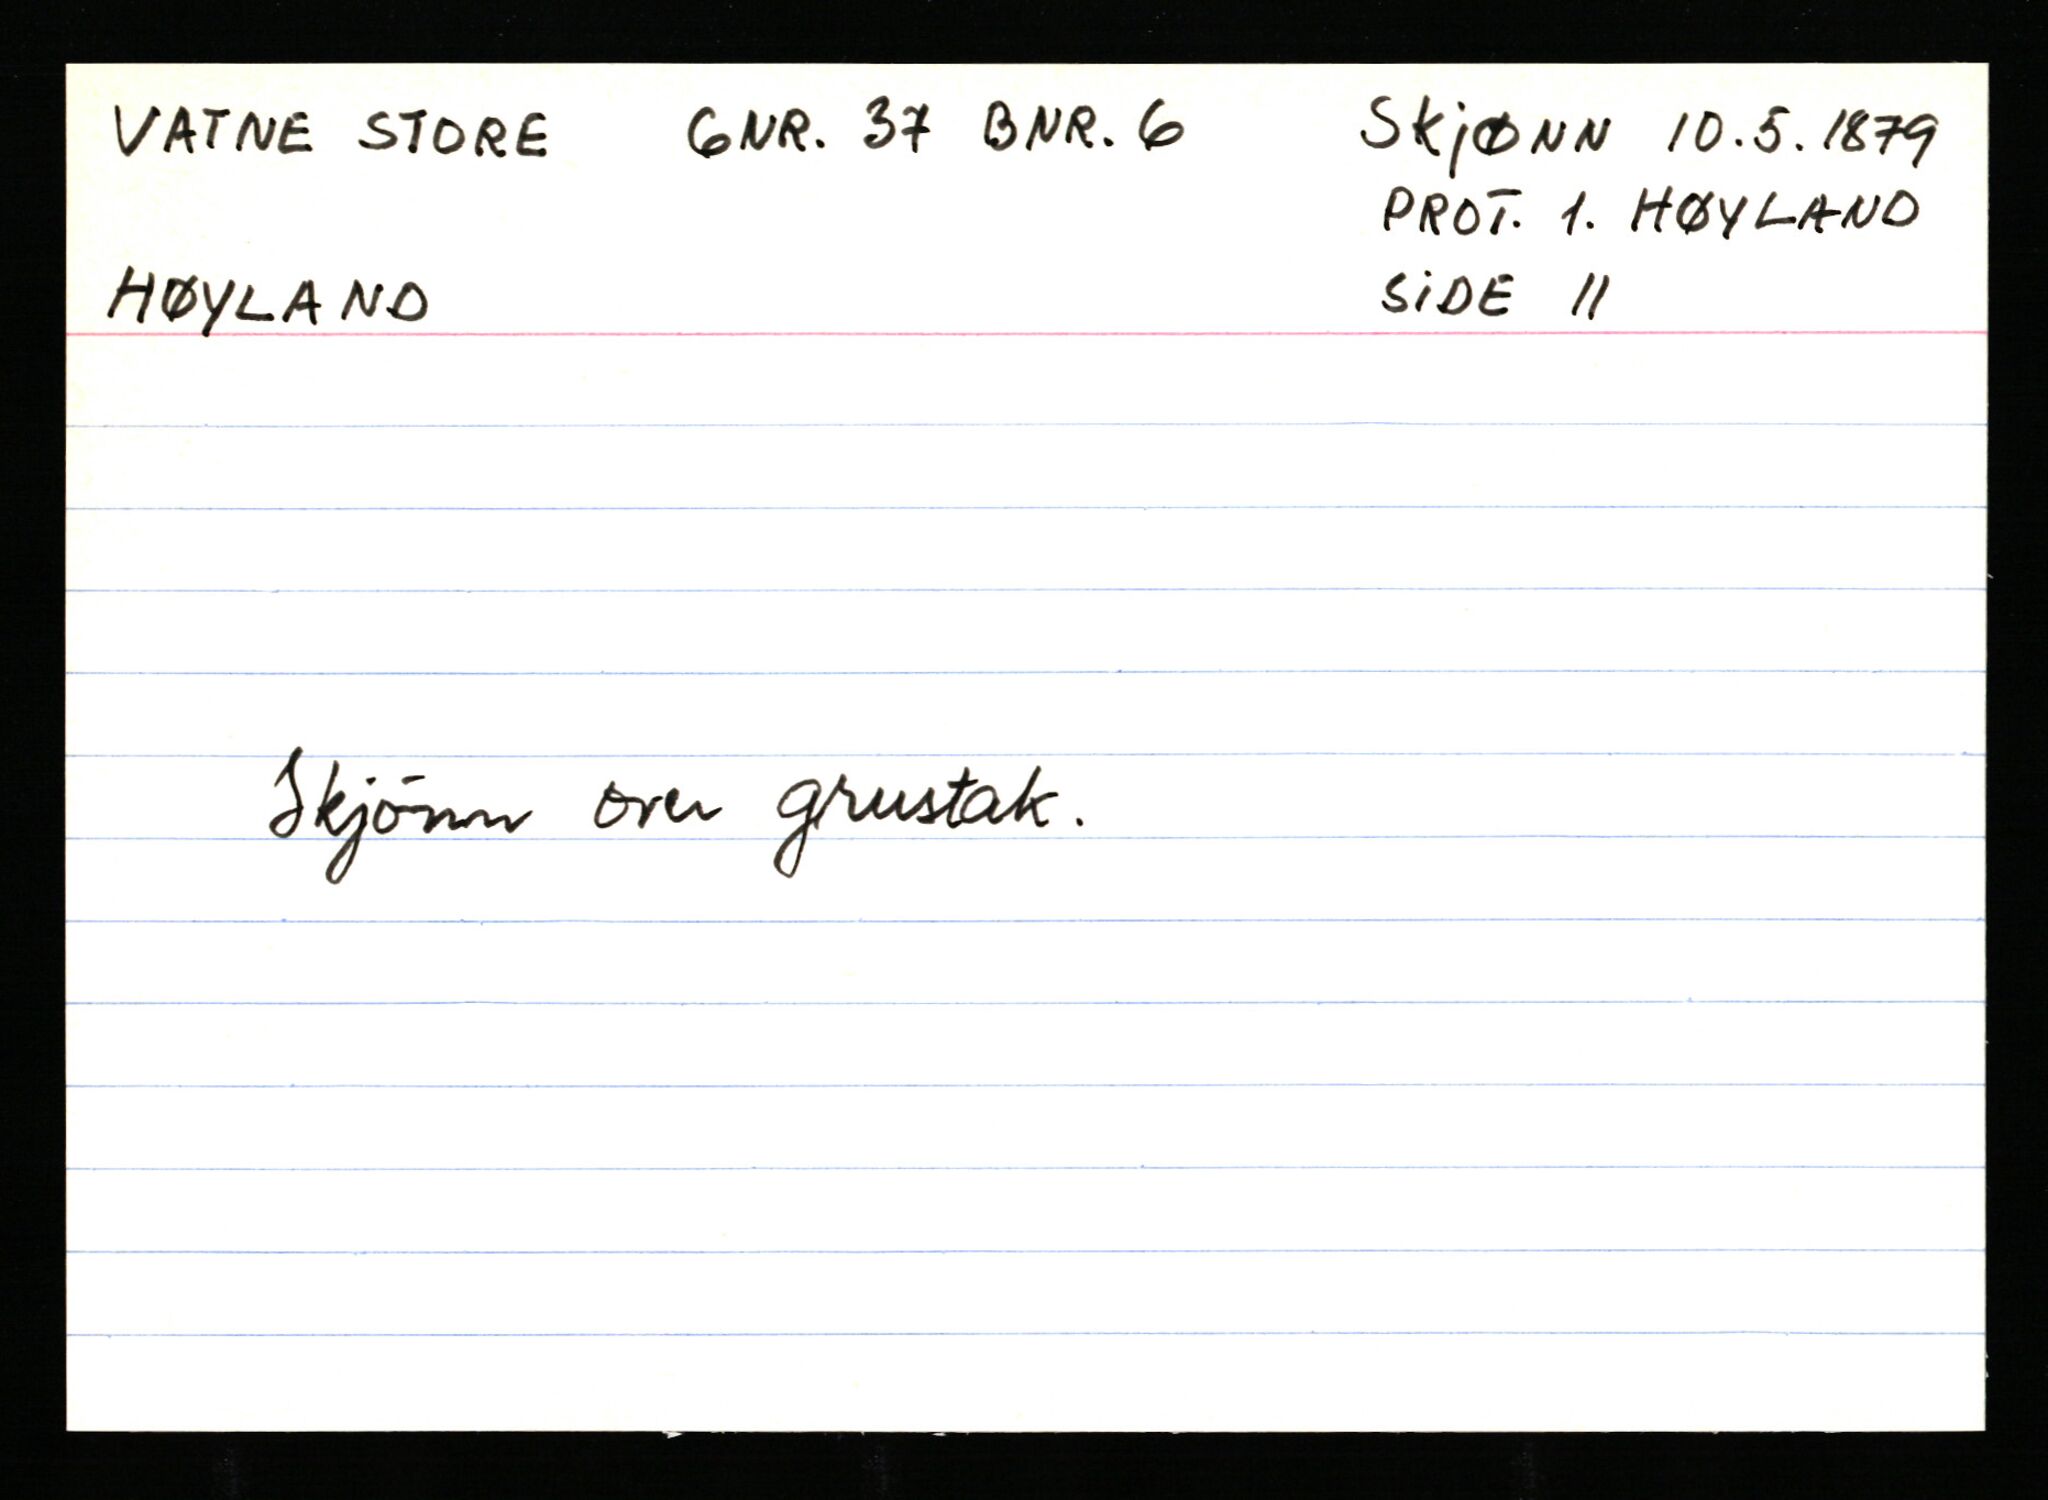 VATNE STORE GNR. 37 BNR. 6 SkjØNN 10.5.1879
PROT. 1. HØYLAND
HØYLAND SiDE 11
Skjönn over grustak.